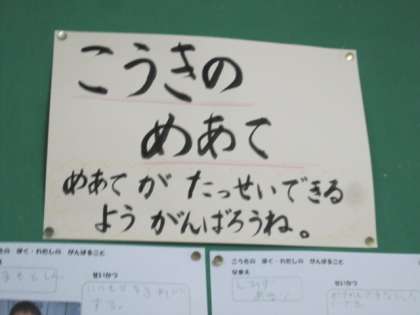 こうきの
めあて
めあて が たっせいできる
よう がんばろうね。
こうきの ぼく・わたしの がんばること
せいかつ
こうきの ぼく・わたしの がんばること
なまえ
せいかつ
する。